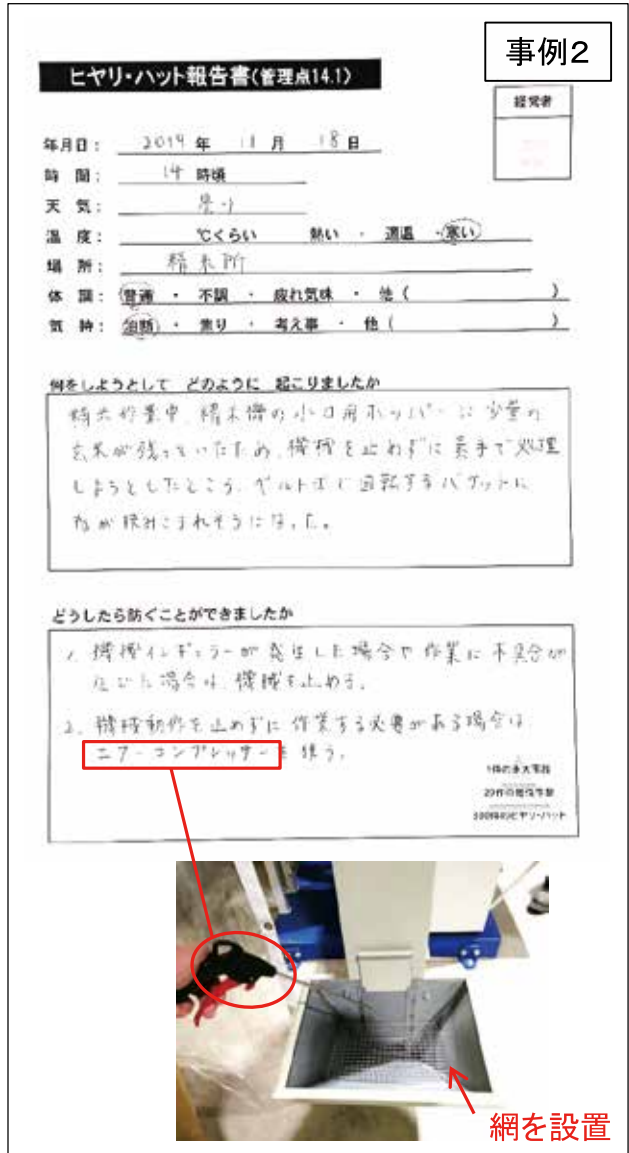 事例2
ヒヤリ・ハット報告書(管理点14.1)
経営者
年月日： 2019 年 11 月 18 日
時 間： 14 時頃
天 気：
温 度： ℃くらい 熱い ・ 適温 ・ 寒い
場 所： 精米所
体 調： 普通 ・ 不調 ・ 疲れ気味 ・ 他 ( )
気 持： 油断 ・ 焦り ・ 考え事 ・ 他 ( )
何をしようとして どのように 起こりましたか
精米作業中、精米機の小口用ホッパーに少量の
玄米が残っていたため、機械を止めずに素手で処理
しようとしたところ、ベルト式で回転するバケットに
指が挟みこまれそうになった。
どうしたら防ぐことができましたか
1. 機械イレギュラーが発生した場合や作業に不具合が
生じた場合は、機械を止める。
2. 機械動作を止めずに作業する必要がある場合は
エアーコンプレッサーを使う。
1件の重大事故
29件の軽傷事故
300件のヒヤリ・ハット
網を設置